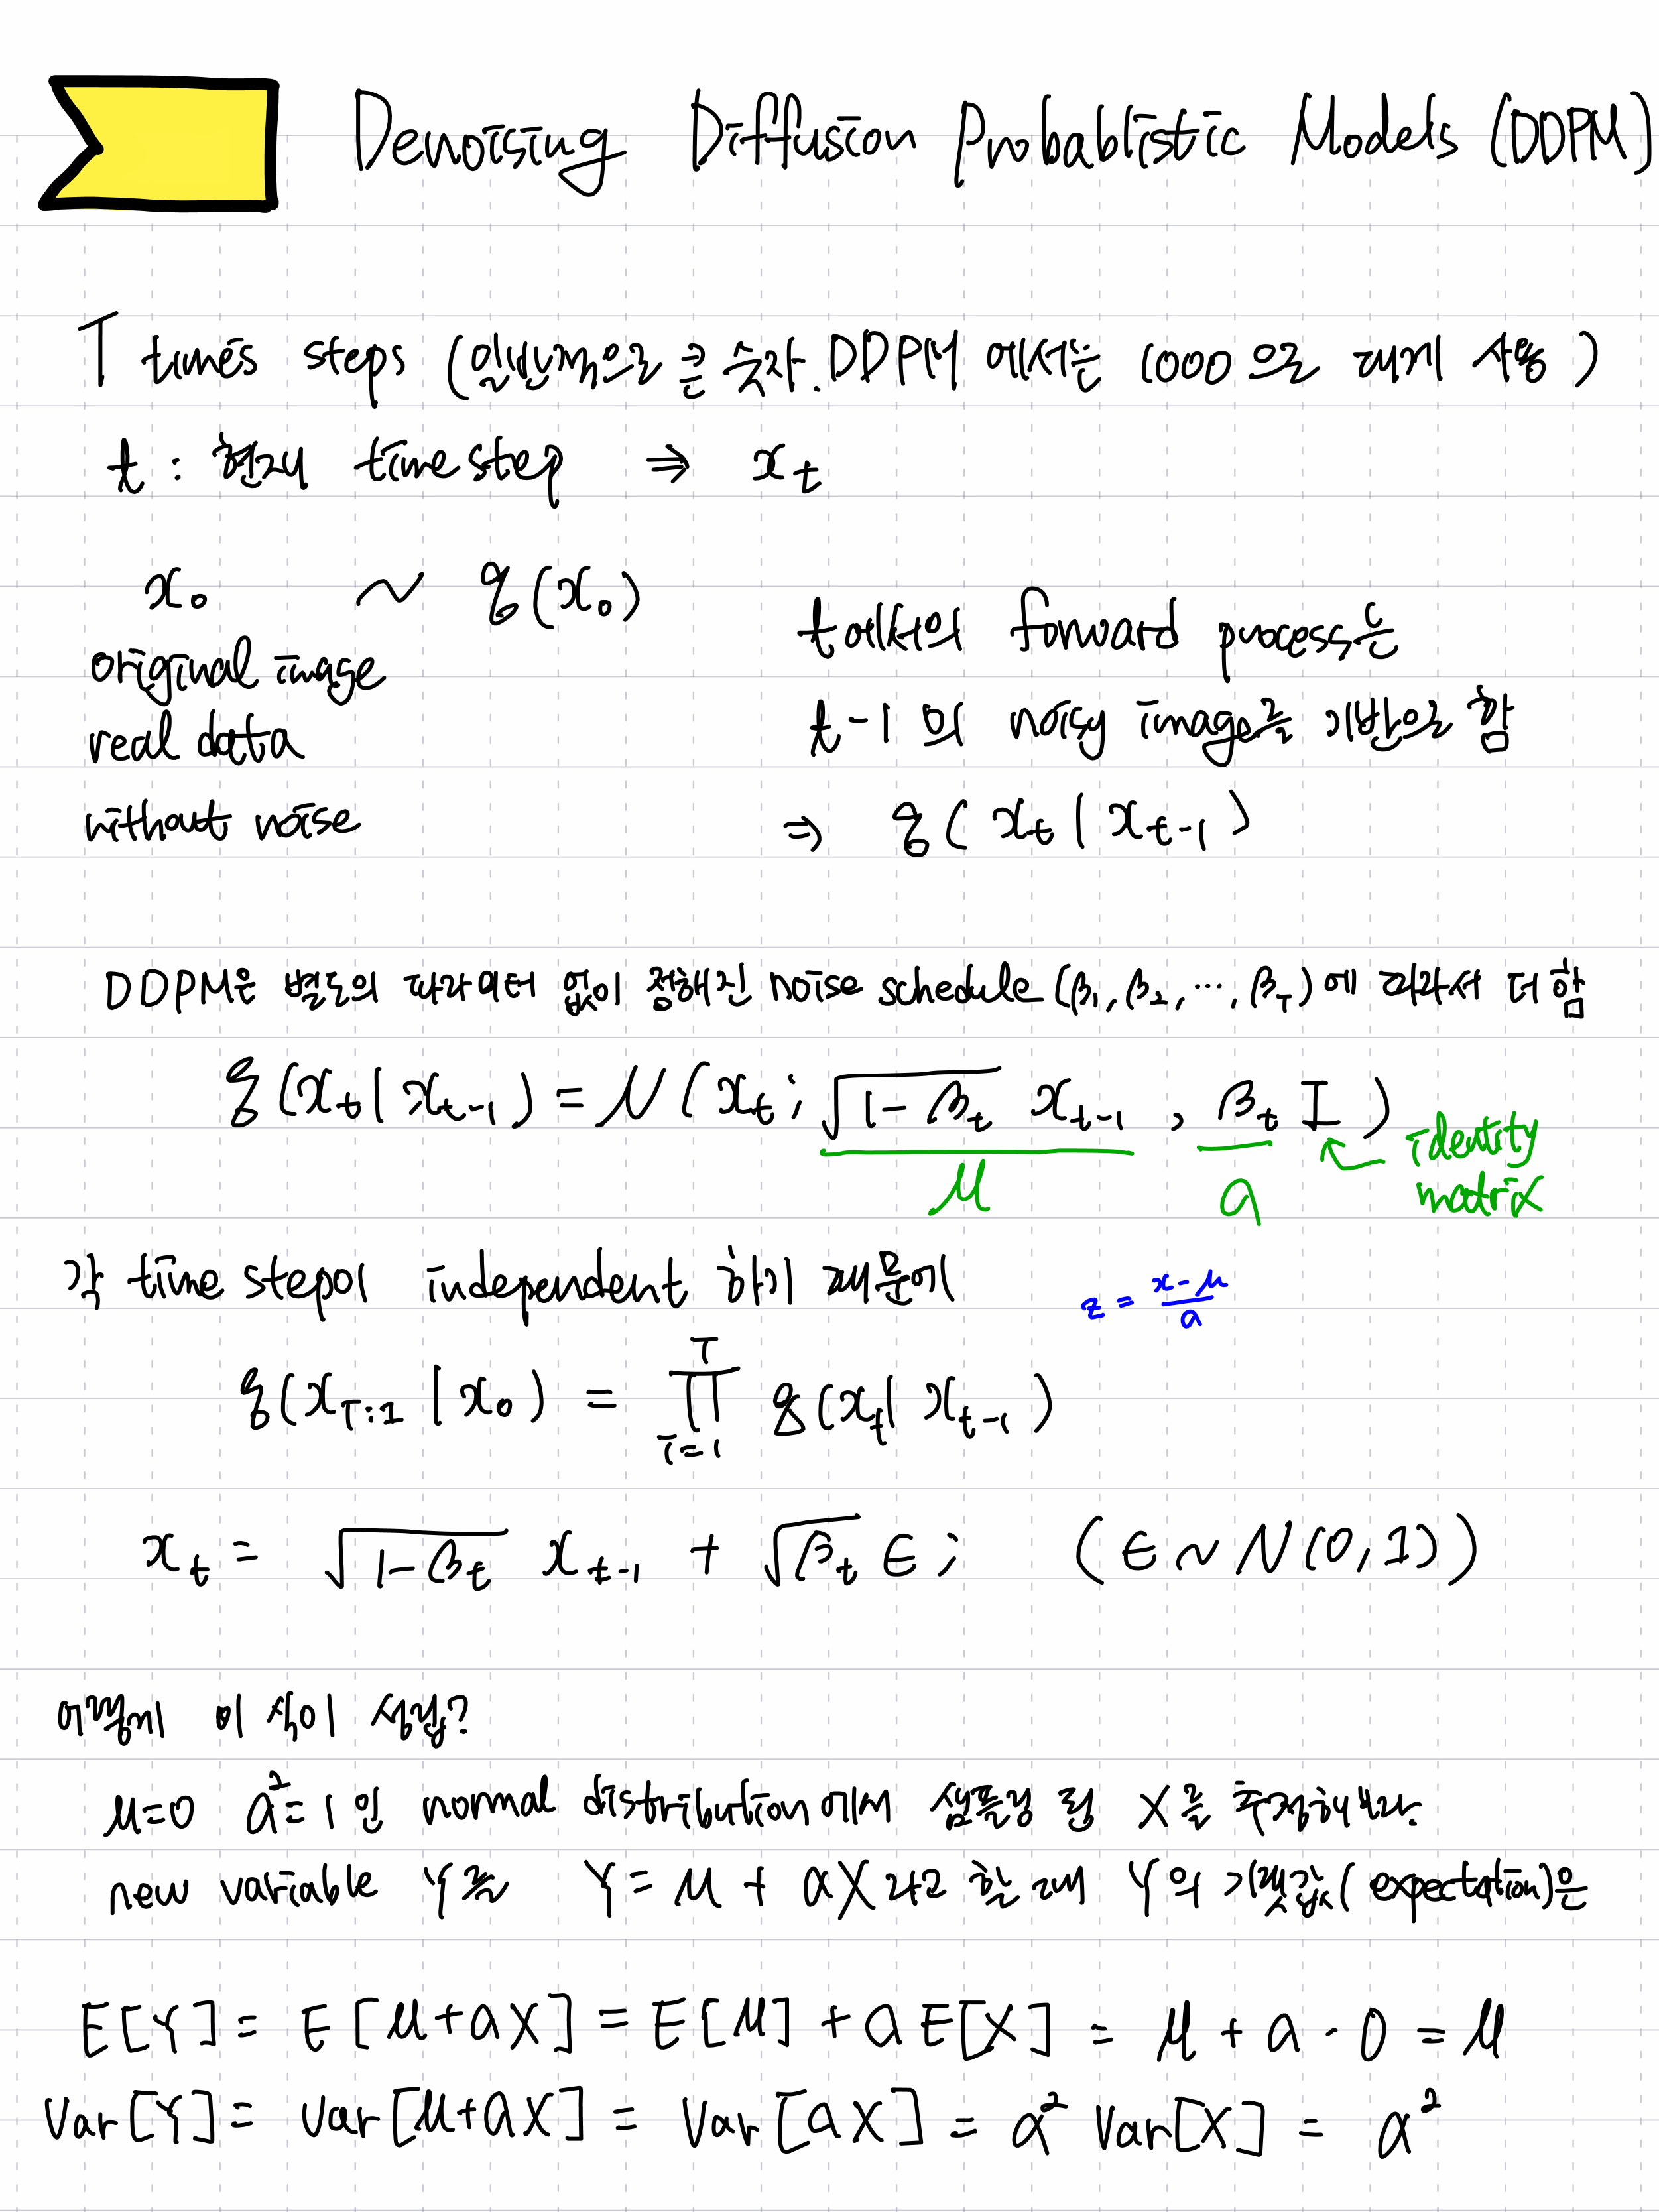 Denoising Diffusion Probablistic Models (DDPM)
T times steps (일반적으로 큰 숫자. DDPM 에서는 1000으로 대게 사용)
t : 현재 timestep ⇒ x_t
x_0 ~ q(x_0)
original image
real data
without noise
t에서의 forward process는
t-1 의 noisy image를 기반으로 함
⇒ q(x_t | x_{t-1})
DDPM은 별도의 파라미터 없이 정해진 noise schedule (β_1, β_2, ..., β_T) 에 따라서 더함
q(x_t | x_{t-1}) = N(x_t ; √(1-β_t) x_{t-1} , β_t I)
μ a identity
matrix
각 time step이 independent 하기 때문에
z = (x-μ)/a
q(x_{T:1} | x_0) = ∏_{i=1}^{T} q(x_t | x_{t-1})
x_t = √(1-β_t) x_{t-1} + √β_t ε ; (ε ~ N(0,1))
어떻게 이 식이 성립?
μ=0 a²=1 인 normal distribution에서 샘플링 된 X를 추정해보자.
new variable Y를 Y = μ + aX 라고 할 때 Y의 기댓값 (expectation)은
E[Y] = E[μ+aX] = E[μ] + aE[X] = μ + a · 0 = μ
Var[Y] = Var[μ+aX] = Var[aX] = a² Var[X] = a²